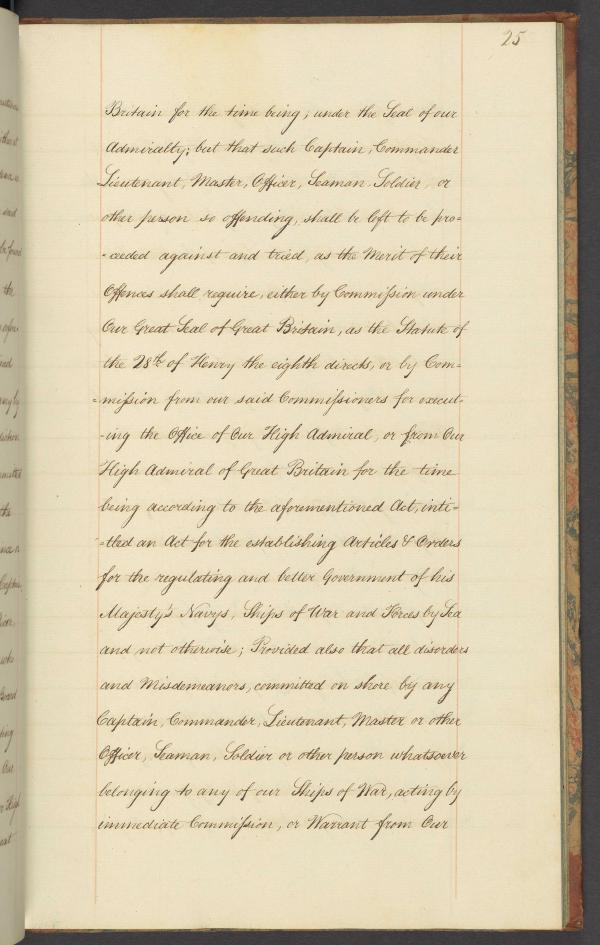 25
Britain for the time being, under the Seal of our
Admiralty; but that such Captain, Commander
Lieutenant, Master, Officer, Seaman, Soldier, or
other person so offending, shall be left to be pro=
=ceeded against and tried, as the Merit of their
Offences shall require, either by Commiſsion under
Our Great Seal of Great Britain, as the Statute of
the 28th of Henry the eighth directs, or by Com=
=miſsion from our said Commiſsioners for execut-
-ing the Office of Our High Admiral, or from Our
High Admiral of Great Britain for the time
being according to the aforementioned Act, inti=
=tled an Act for the establishing Articles & Orders
for the regulating and better Government of his
Majesty's Navys, Ships of War and Forces by Sea
and not otherwise; Provided also that all disorders
and Misdemeanors, committed on shore by any
Captain, Commander, Lieutenant, Master or other
Officer, Seaman, Soldier or other person whatsoever
belonging to any of our Ships of War, acting by
immediate Commiſsion, or Warrant from Our